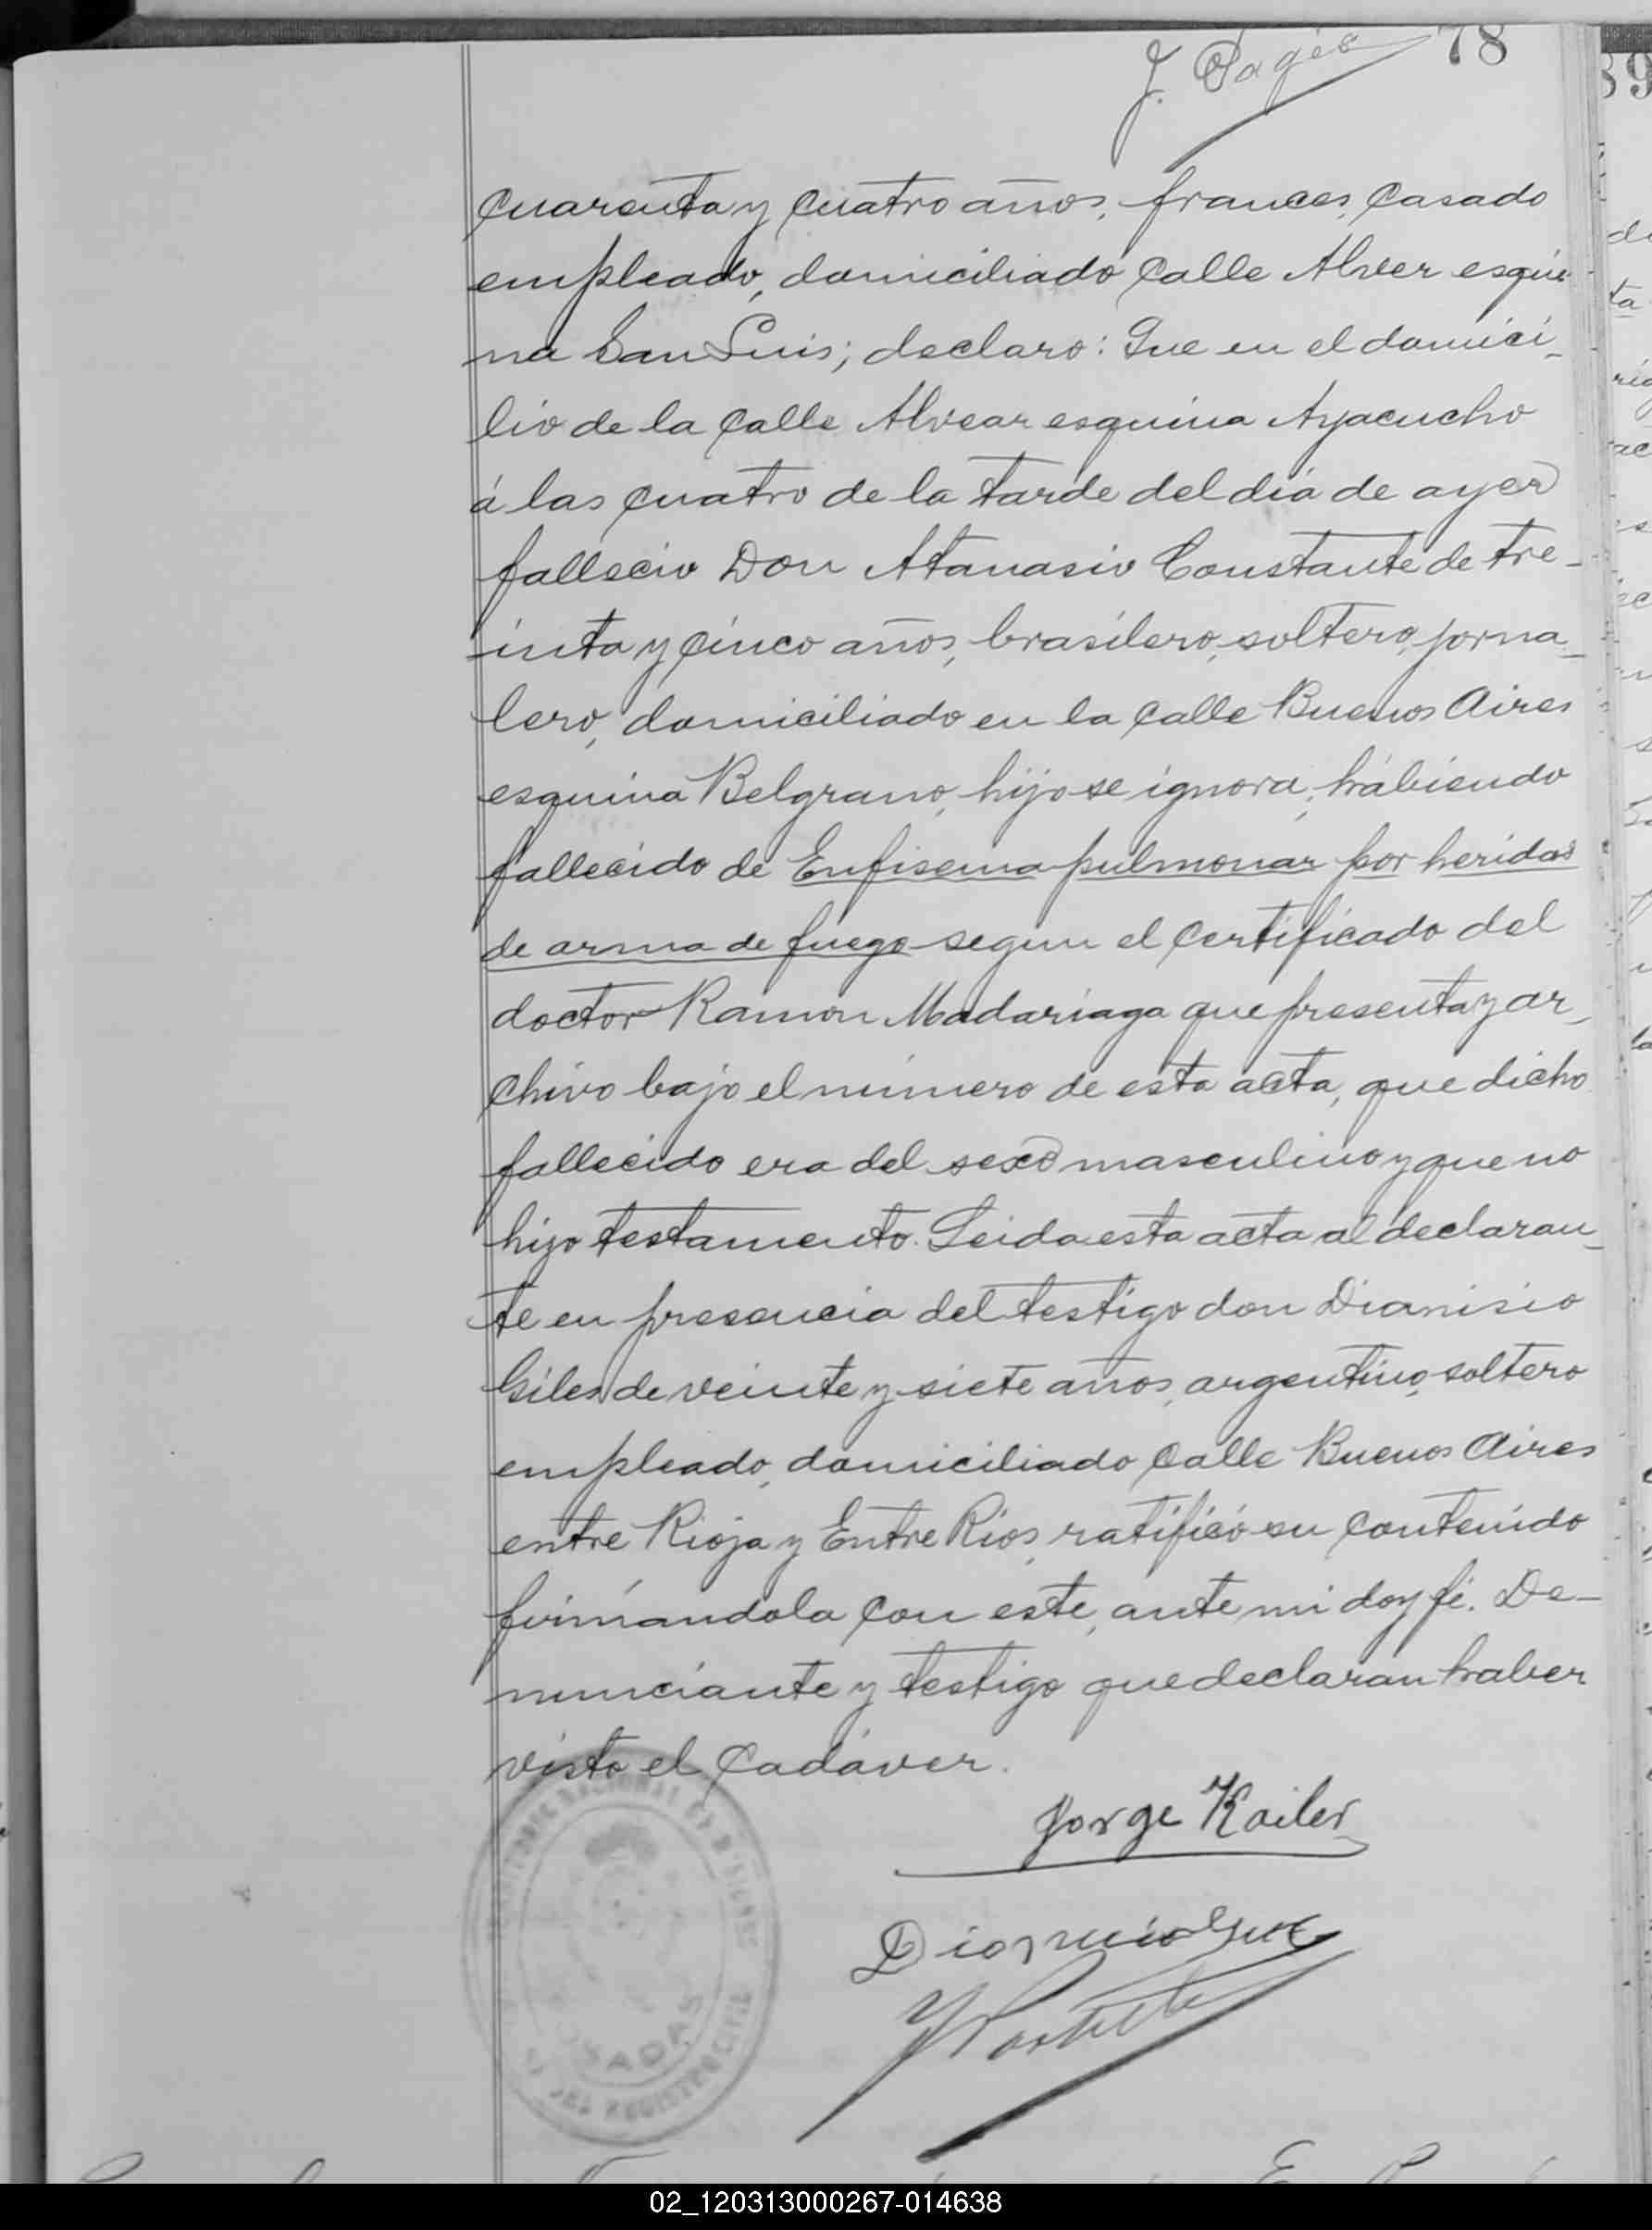 J. Pagés 78
89
cuarenta y cuatro años, frances, casado
empleado, domiciliado calle Alvear esqui
na San Luis; declaro: Que en el domici_
lio de la calle Alvear esquina Ayacucho
á las cuatro de la tarde del dia de ayer
fallecio Don Atanasio Constante de tre_
inta y cinco años, brasilero, soltero, jorna_
lero, domiciliado en la calle Buenos Aires
esquina Belgrano, hijo se ignora, habiendo
fallecido de Enfisema pulmonar por heridas
de arma de fuego segun el certificado del
doctor Ramon Madariaga que presenta y ar_
chivo bajo el número de esta acta, que dicho
fallecido era del sexo masculino y que no
hizo testamento. Leida esta acta al declaran_
te en presencia del testigo don Dionisio
Giles de veinte y siete años, argentino, soltero
empleado, domiciliado calle Buenos Aires
entre Rioja y Entre Rios, ratificó su contenido
firmándola con este, ante mi doy fé. De_
nunciante y testigo que declaran haber
visto el cadáver.
Jorge Kailer
Dionicio
POSADAS
DEL REGISTRO CIVIL
02_120313000267-014638